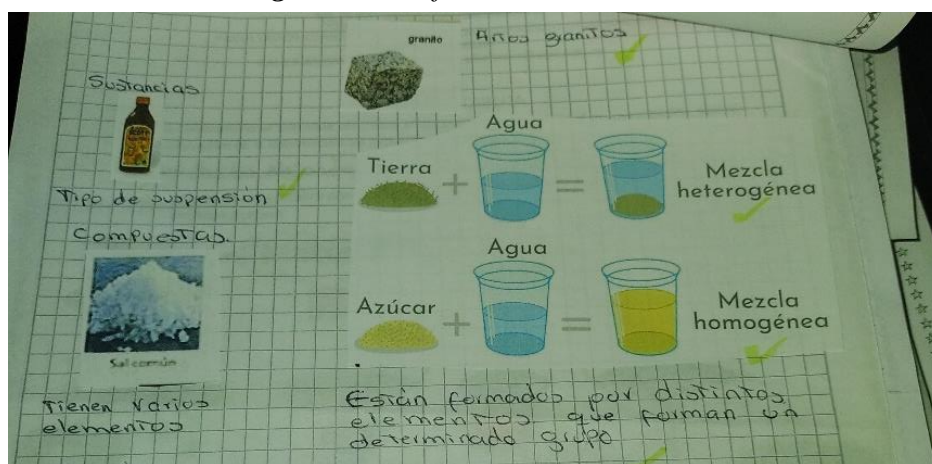 granito
Años granitos
Sustancias
Tipo de suspensión
Compuestas.
Sal común
Tienen varios
elementos
Agua
Tierra
Mezcla
heterogénea
Agua
Azúcar
Mezcla
homogénea
Están formados por distintos
elementos que forman un
determinado grupo